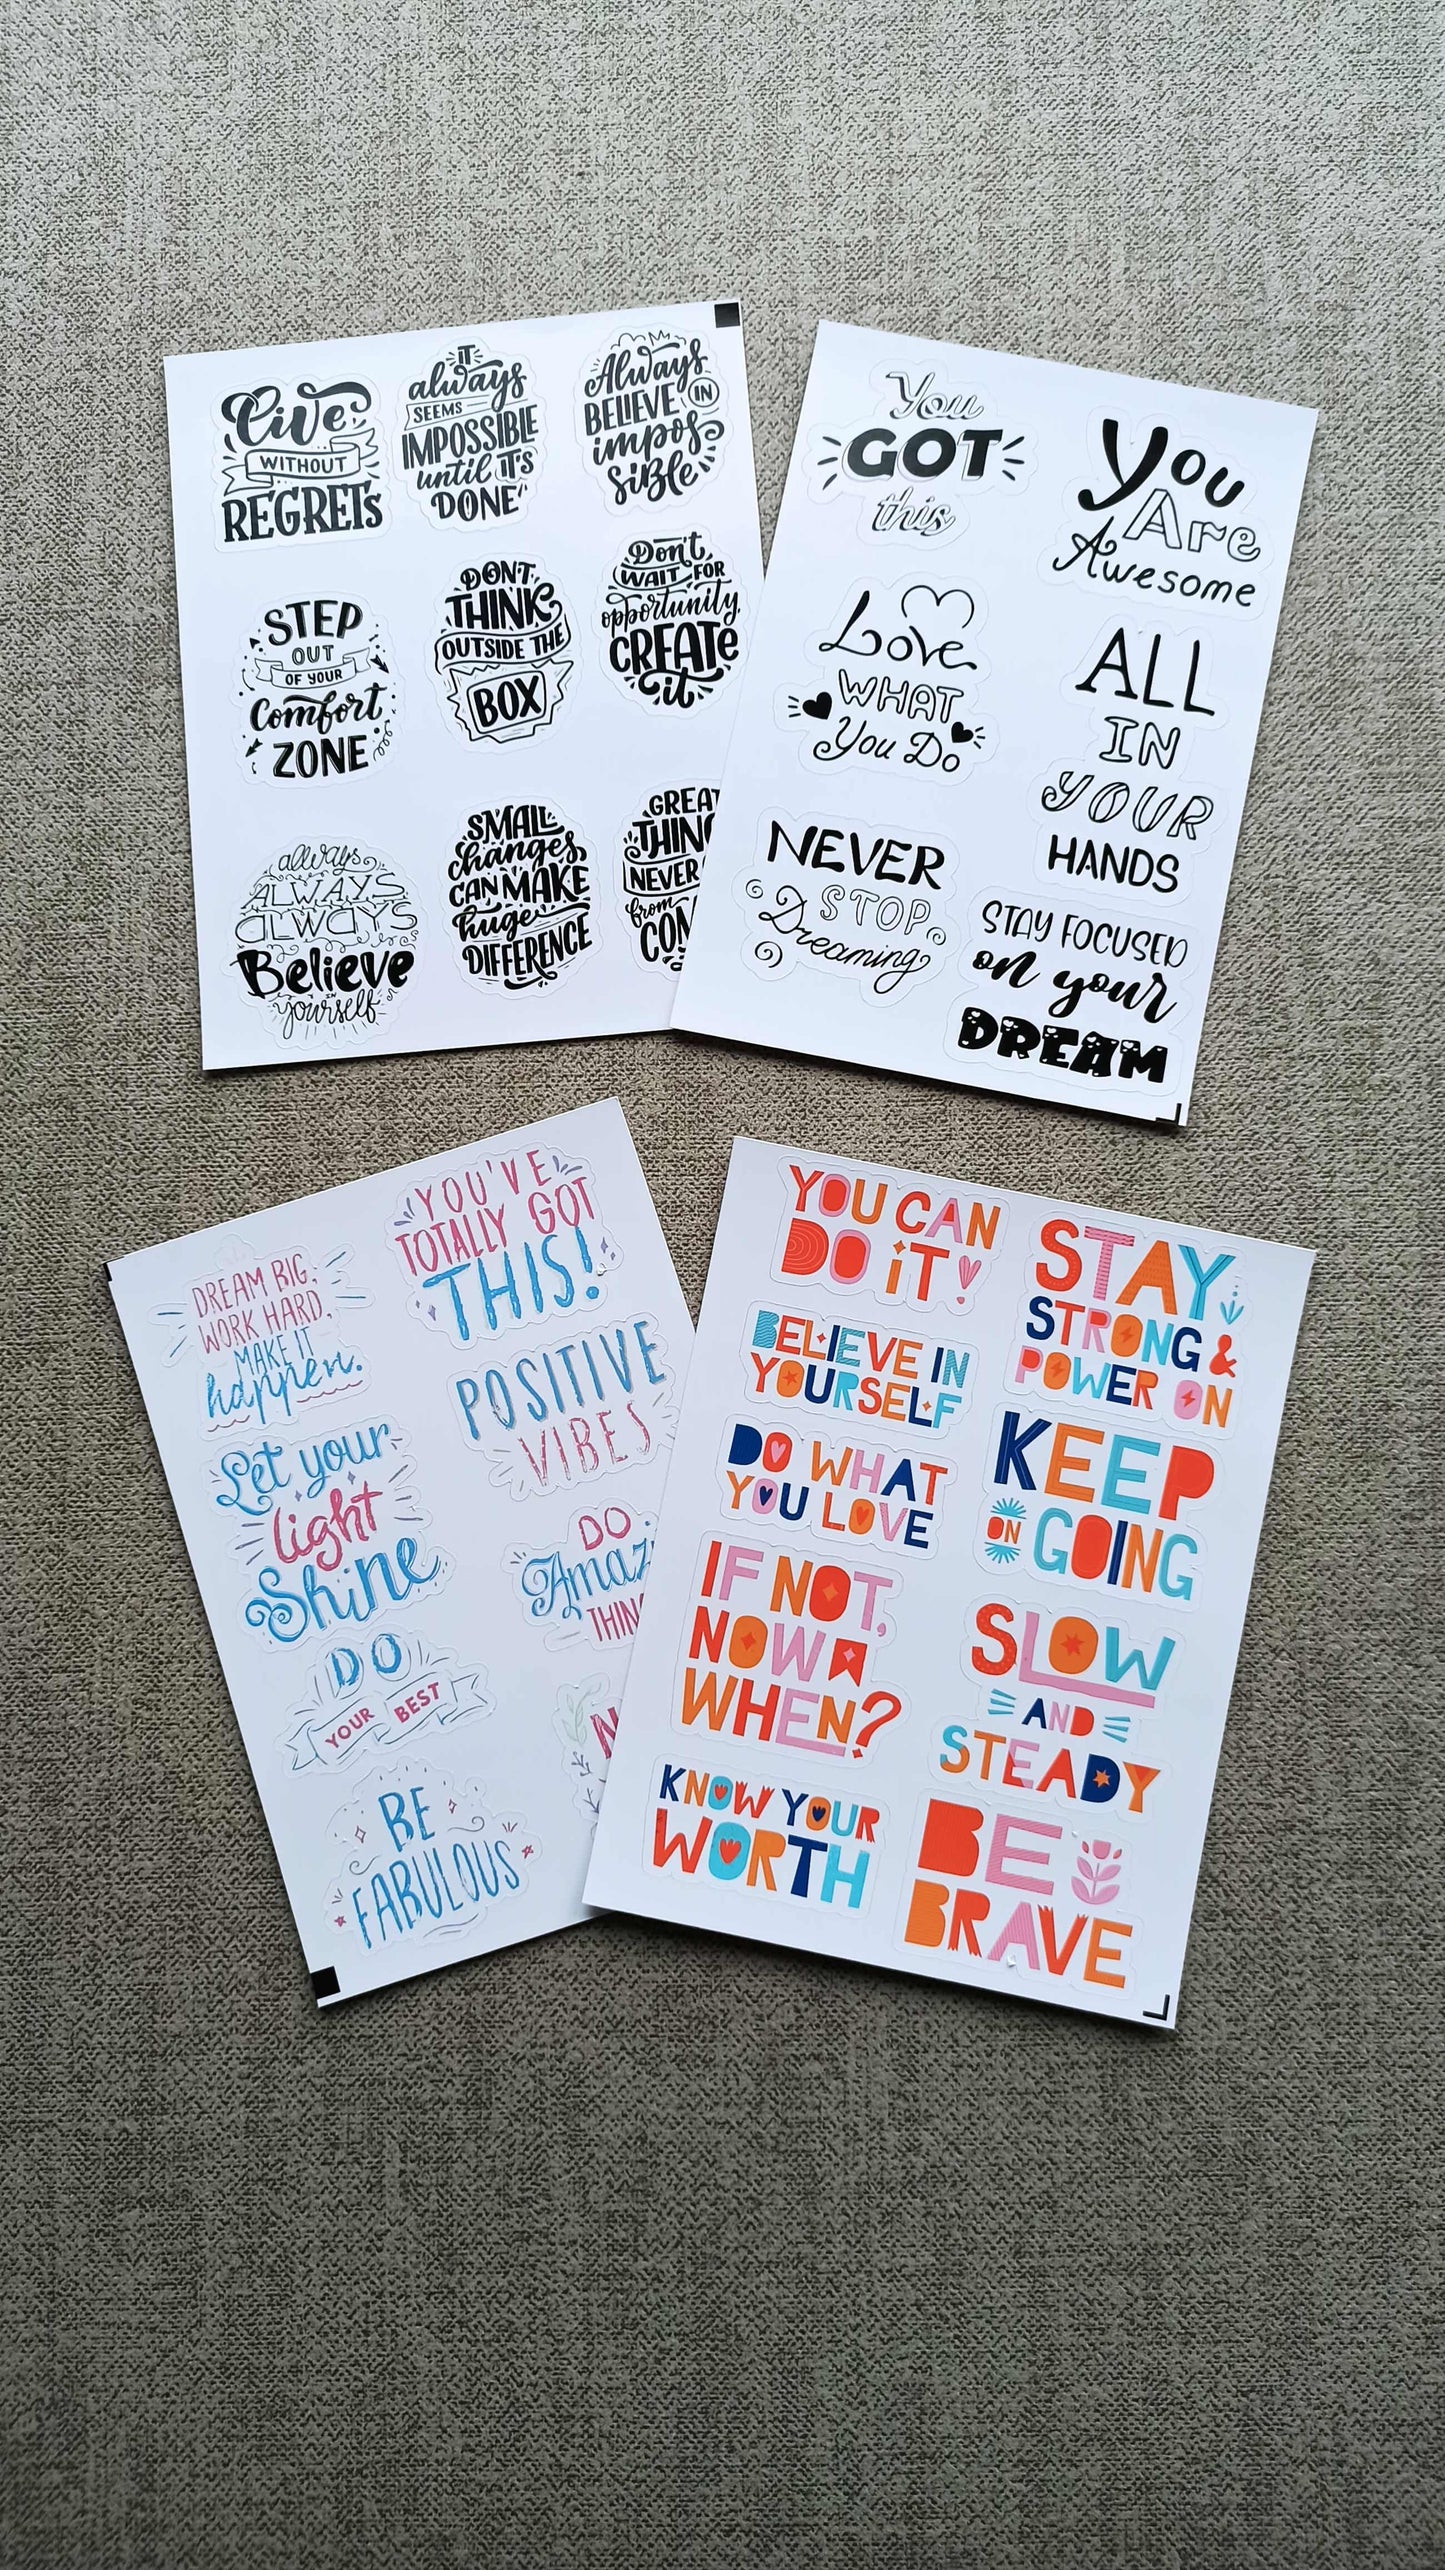 Live
WITHOUT
REGRETS
iT
always
SEEMS
IMPOSSIBLE
until iT'S
DONE
Always
BELIEVE IN
impos
siBle
STEP
OUT
OF YOUR
Comfort
ZONE
DON'T
THINK
OUTSIDE THE
BOX
Don't
WAIT FOR
opportunity,
CREATe
it
always
ALWAYS
ALWAYS
Believe
IN
yourself
SMALL
changes
CAN MAKE
huge
DIFFERENCE
GREAT
THING
NEVER
from
COM
You
GOT
this
You
Are
Awesome
Love
WHAT
You Do
ALL
IN
YOUR
HANDS
NEVER
STOP
Dreaming
STAY FOCUSED
on your
DREAM
DREAM BIG,
WORK HARD,
MAKE IT
happen.
YOU'VE
TOTALLY GOT
THIS!
Let your
light
Shine
POSITIVE
VIBES
DO
YOUR BEST
DO
Amaz
THIN
BE
FABULOUS
YOU CAN
DO iT!
STAY
STRONG &
POWER ON
BELIEVE IN
YOURSELF
KEEP
ON GOING
DO WHAT
YOU LOVE
IF NOT,
NOW
WHEN?
SLOW
AND
STEADY
KNOW YOUR
WORTH
BE
BRAVE